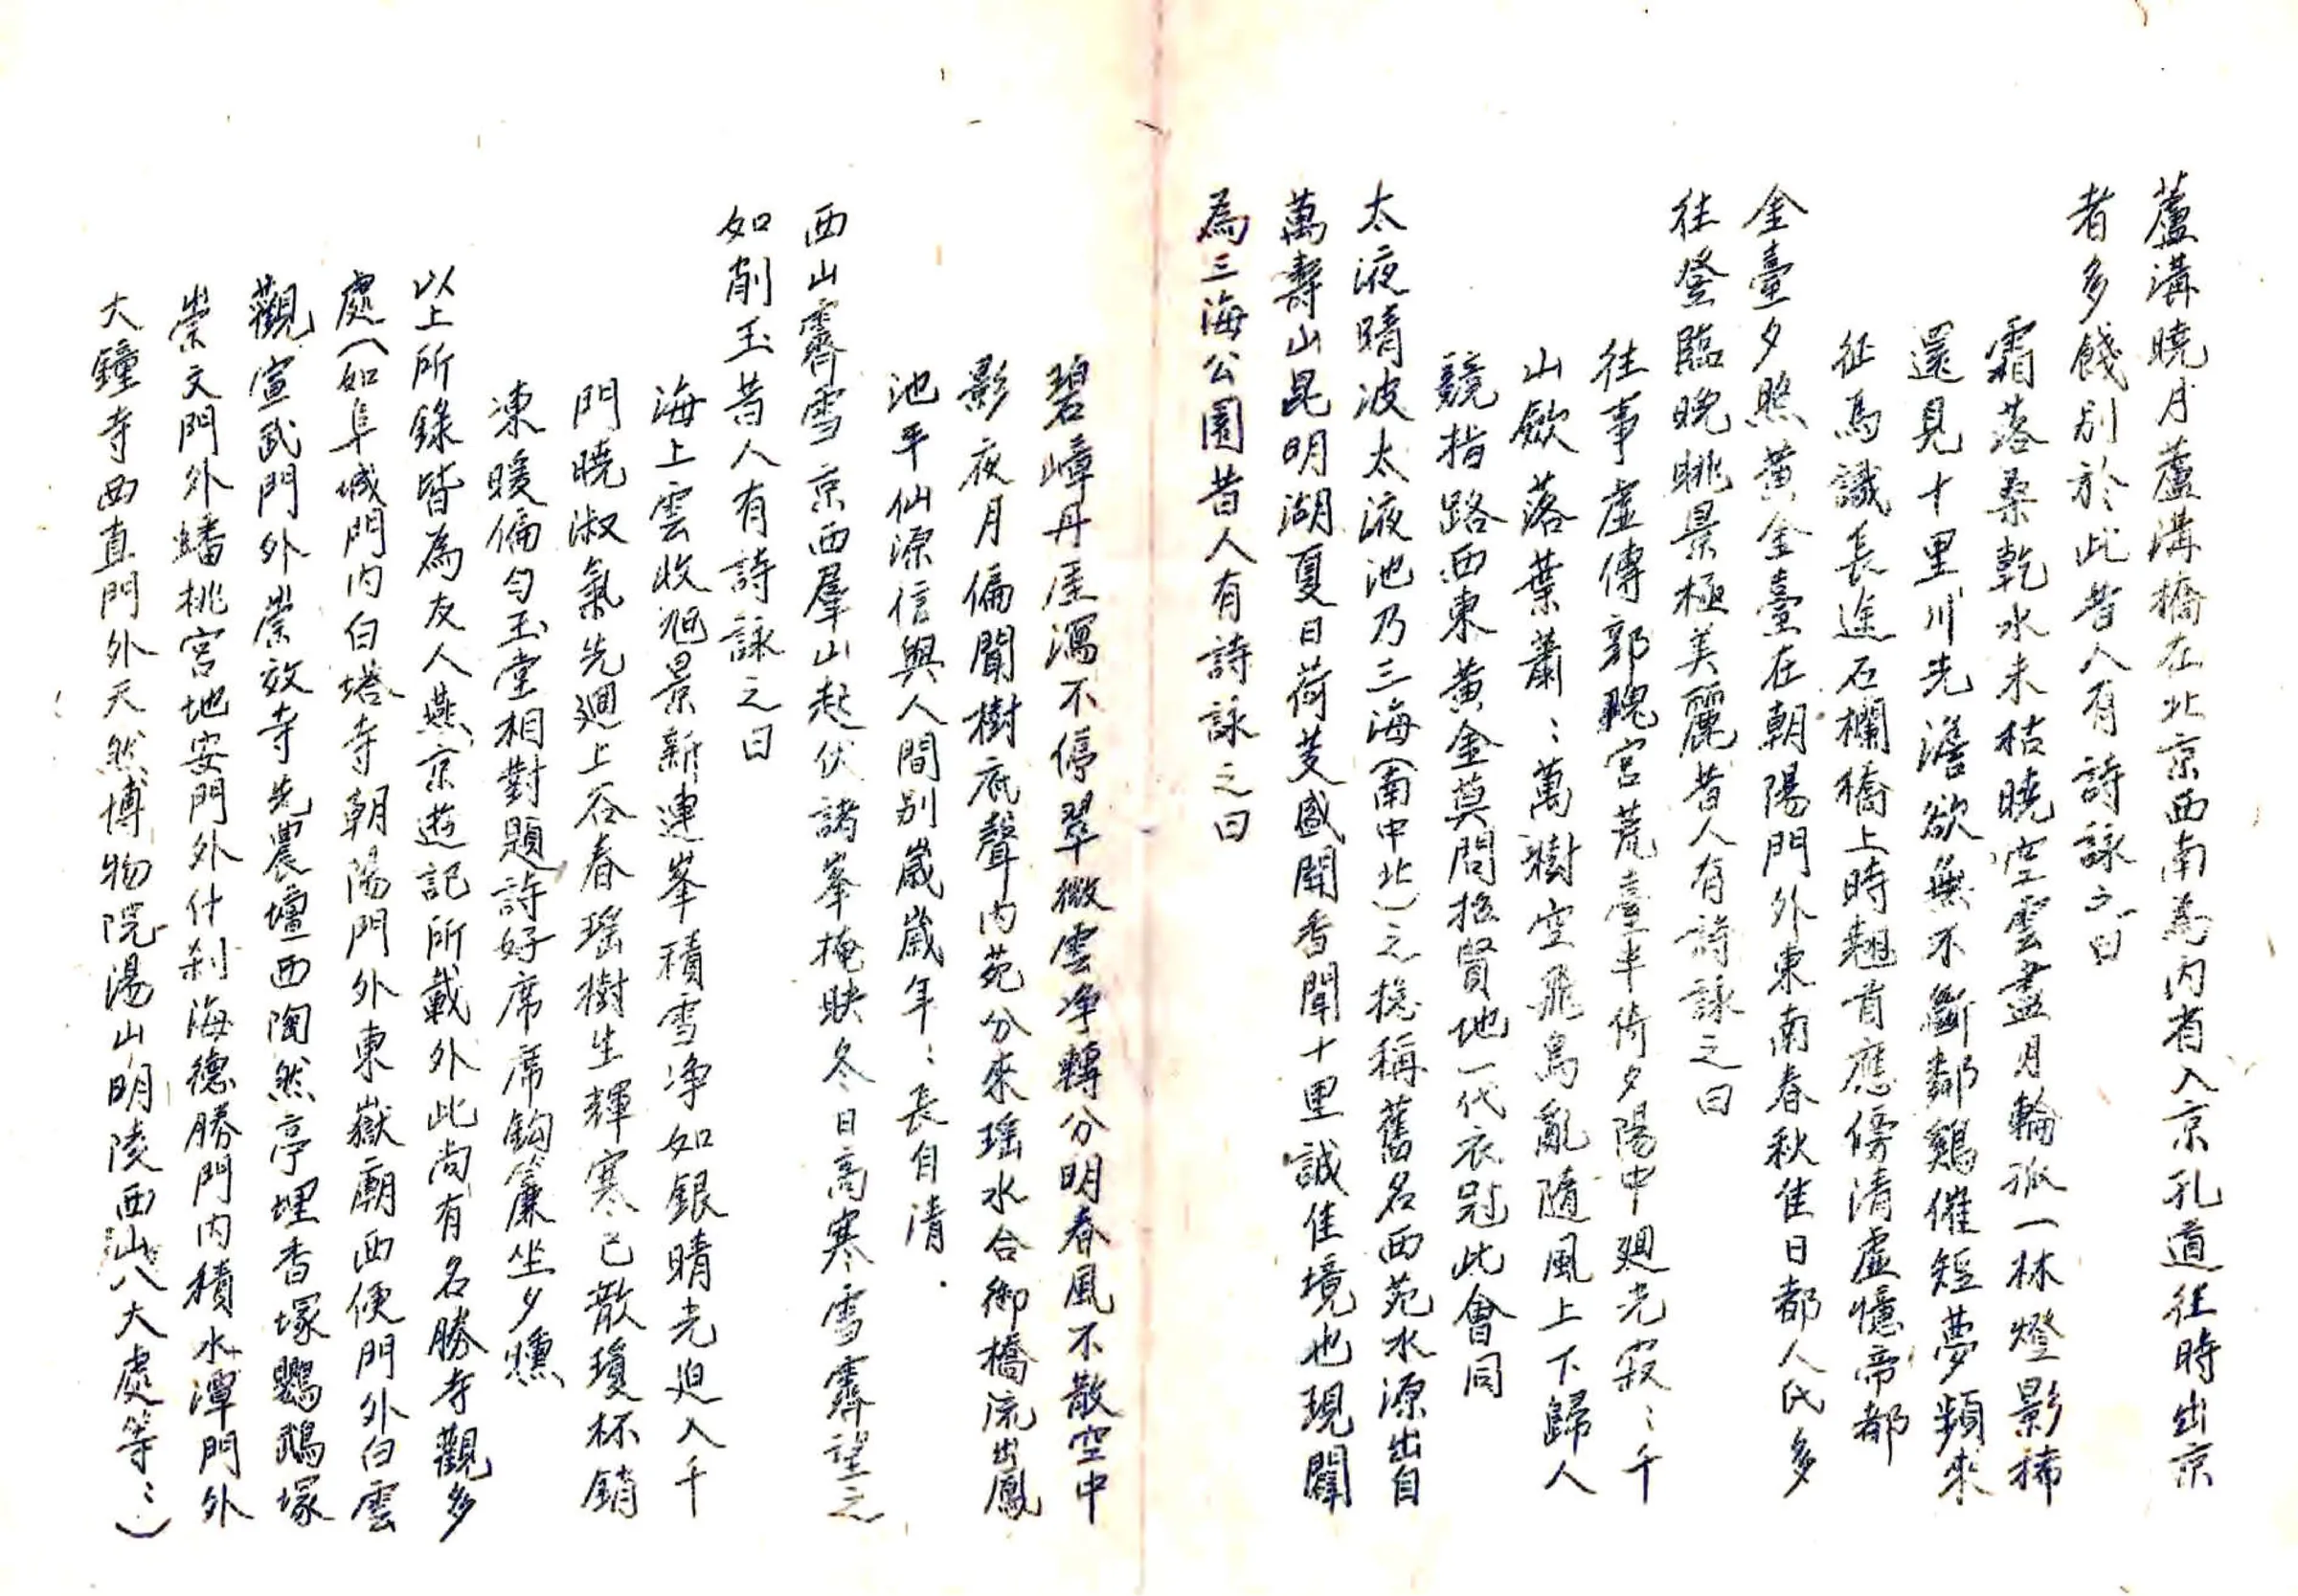 蘆溝曉月蘆溝橋在北京西南為內省入京孔道往時出京
者多餞别於此昔人有詩詠之曰
霜落桑乾水未枯曉空雲盡月輪孤一林燈影稀
還見十里川光澹欲無不斷鄰鷄催短夢頻來
征馬識長途石欄橋上時翹首應傍清虛憶帝都
金臺夕照黃金臺在朝陽門外東南春秋佳日都人氏多
往登臨晚眺景極美麗昔人有詩詠之曰
往事虛傳郭隗宮荒臺半倚夕陽中廻光寂〻千
山歛落葉蕭〻萬樹空飛鳥亂隨風上下歸人
競指路西東黃金莫問招賢地一代衣冠此會同
太液晴波太液池乃三海(南中北)之総稱舊名西苑水源出自
萬壽山昆明湖夏日荷芰盛開香聞十里誠佳境也現闢
為三海公園昔人有詩詠之曰
碧嶂丹厓瀉不停翠微雲净轉分明春風不散空中
影夜月偏聞樹底聲內苑分來瑤水合御橋流出鳳
池平仙源信與人間别歲歲年〻長自清.
西山霽雪京西羣山起伏諸峯掩映冬日高寒雪霽望之
如削玉昔人有詩詠之曰
海上雲收旭景新連峯積雪净如銀晴光迫入千
門曉淑氣先廻上谷春瑤樹生輝寒已散瓊杯銷
凍暖偏勻玉堂相對題詩好席席鈎簾坐夕燻
以上所錄皆為友人燕京遊記所載外此尚有名勝寺觀多
處(如阜城門內白塔寺朝陽門外東嶽廟西便門外白雲
觀宣武門外崇效寺先農壇西陶然亭埋香塚鸚鵡塚
崇文門外蟠桃宮地安門外什刹海德勝門內積水潭門外
大鐘寺西直門外天然博物院湯山明陵西山八大處等〻)